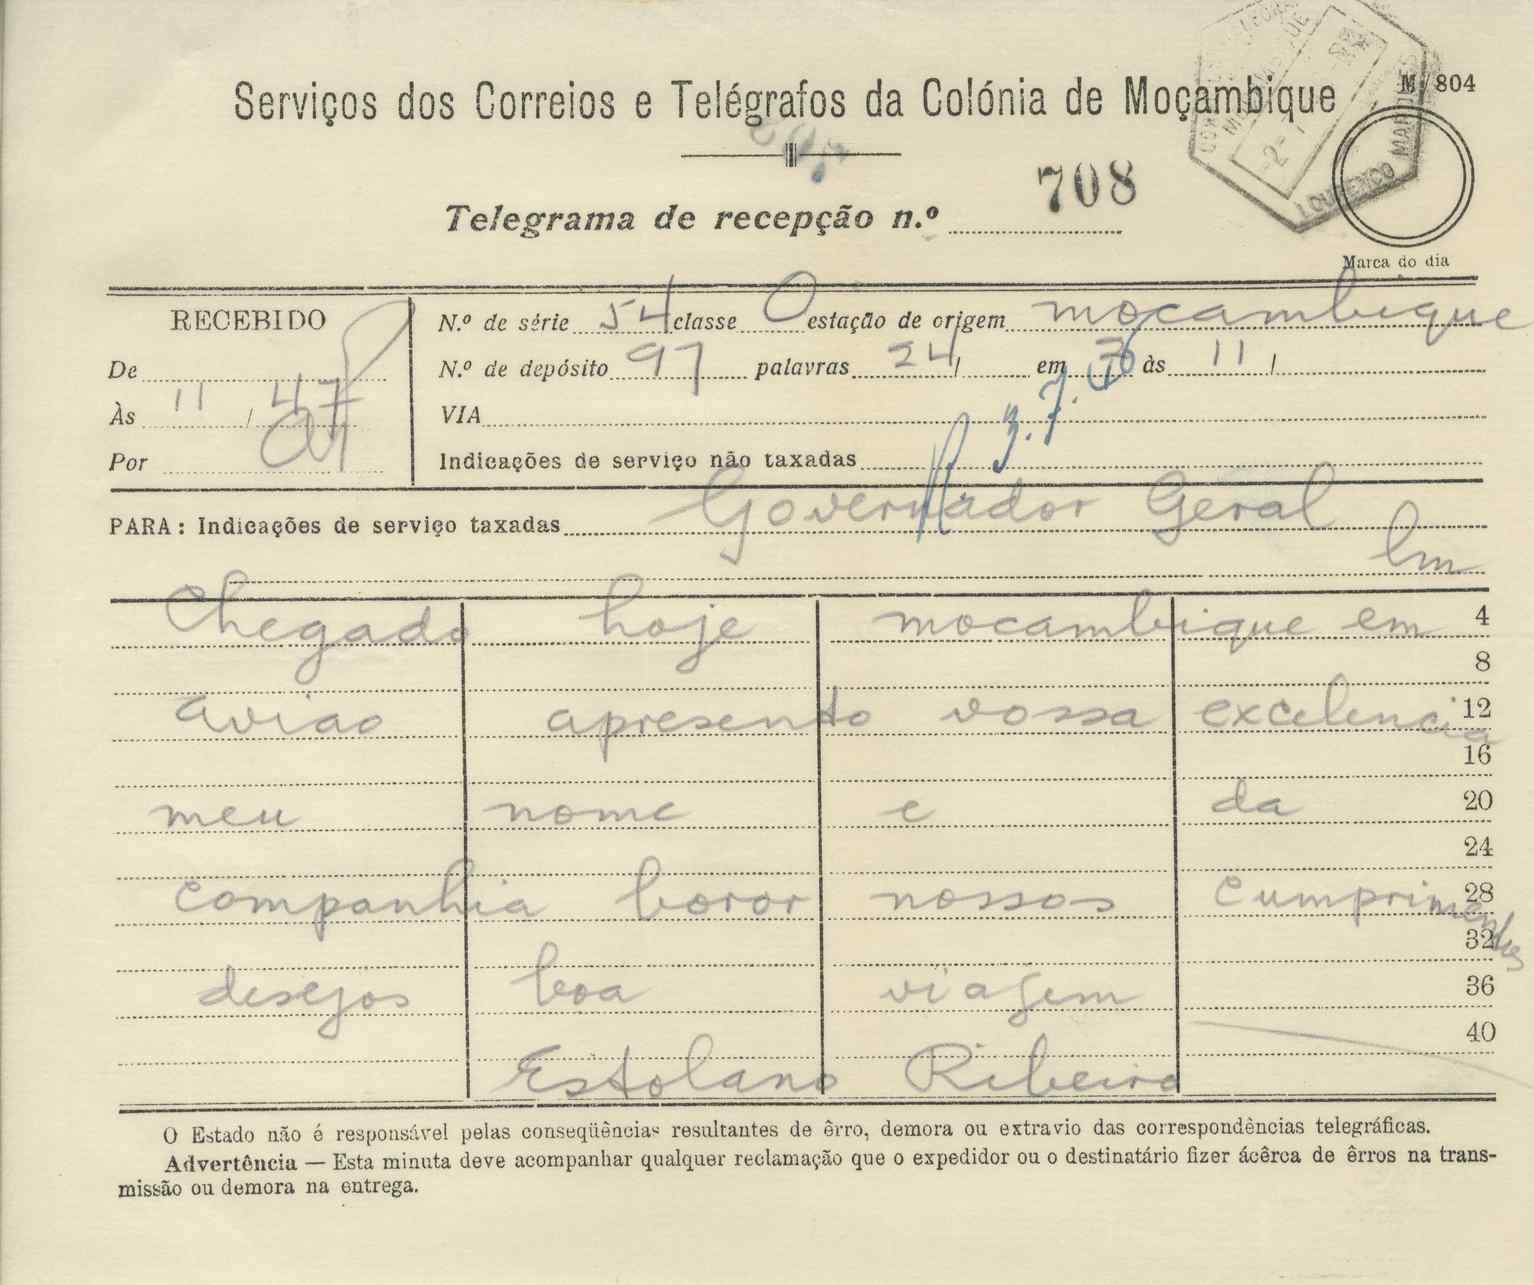 M/804
Serviços dos Correios e Telégrafos da Colónia de Moçambique
708
Telegrama de recepção n.º
LOURENCO MARQ
Marca do dia
RECEBIDO
N.º de série 54 classe O estação de origem mocambique
De
N.º de depósito 97 palavras 24/ em às 11/
Às 11/47
VIA
3.7.
Por
Indicações de serviço não taxadas
PARA: Indicações de serviço taxadas Governador Geral
Lm
Chegado hoje mocambique em 4
8
aviao apresento vossa excelencia 12
16
meu nome e da 20
24
companhia boror nossos cumprimentos 28
32
desejos boa viagem 36
40
Estolano Ribeiro
O Estado não é responsável pelas conseqüências resultantes de êrro, demora ou extravio das correspondências telegráficas.
Advertência — Esta minuta deve acompanhar qualquer reclamação que o expedidor ou o destinatário fizer ácêrca de êrros na trans-
missão ou demora na entrega.